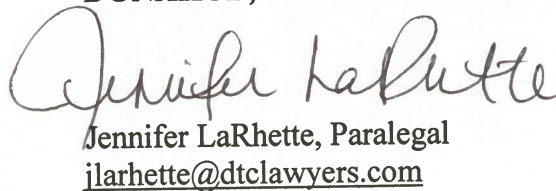 Jennifer LaRhette
Jennifer LaRhette, Paralegal
jlarhette@dtclawyers.com